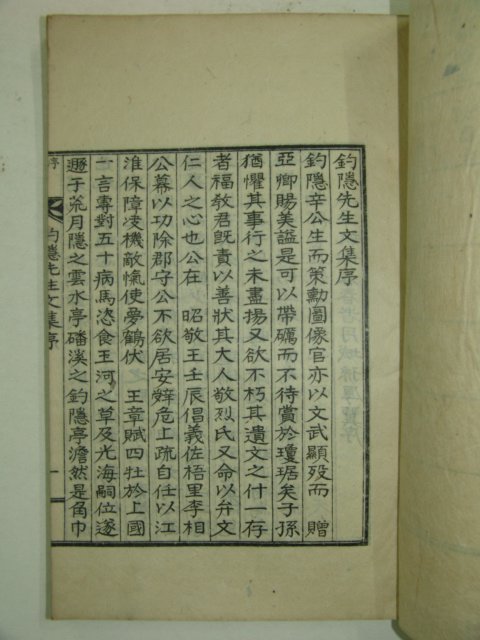 釣隱先生文集序
釣隱辛公生而策勳圖像官亦以文武顯歿而 贈
亞卿賜美謚是可以帶礪而不待賞於瓊琚矣子孫
猶懼其事行之未盡揚又欲不朽其遺文之什一存
者福敎君旣責以善狀其大人敎烈氏又命以弁文
仁人之心也公在 昭敬王壬辰倡義佐梧里李相
公幕以功除郡守公不欲居安辭危上疏自任以江
淮保障凌機敵愾使夢鶴伏 王章賦四牡於上國
一言專對五十病馬恣食玉河之草及光海嗣位遂
遯于荒月隱之雲水亭磻溪之釣隱亭澹然是角巾
序 釣隱先生文集序 一